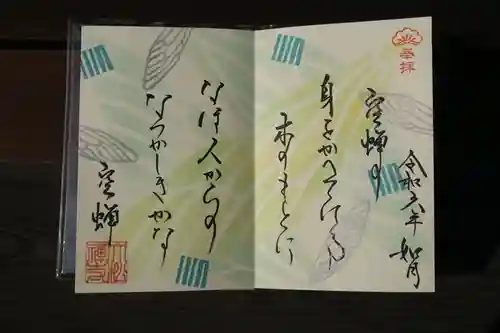 奉拝
令和六年 如月
空蝉の
身をかへてける
木のもとに
なほ人からの
なつかしきかな
空蝉